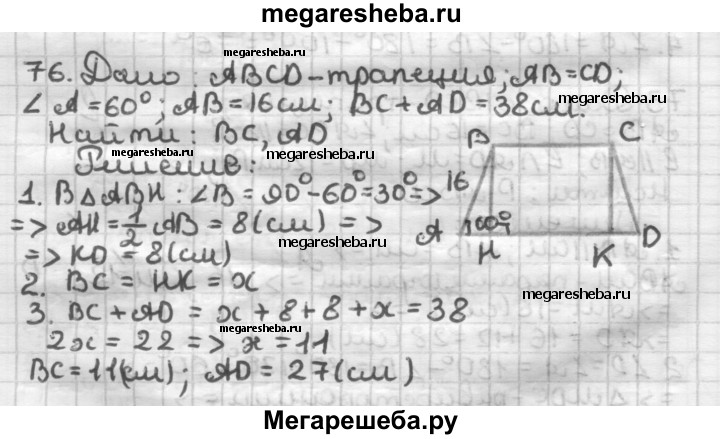 megaresheba.ru
76. Дано: ABCD-трапеция; AB=CD;
∠A=60°; AB=16см; BC+AD=38см.
Найти: BC, AD
Решение:
1. В △ABH: ∠B=90°-60°=30° =>
=> AH = 1/2 AB = 8(см) =>
=> KD = 8(см)
2. BC = HK = x
3. BC + AD = x + 8 + 8 + x = 38
2x = 22 => x = 11
BC = 11(см); AD = 27(см)
B C
16
A 60° D
H K
megaresheba.ru
megaresheba.ru
megaresheba.ru
megaresheba.ru
megaresheba.ru
megaresheba.ru
Мегарешеба.ру